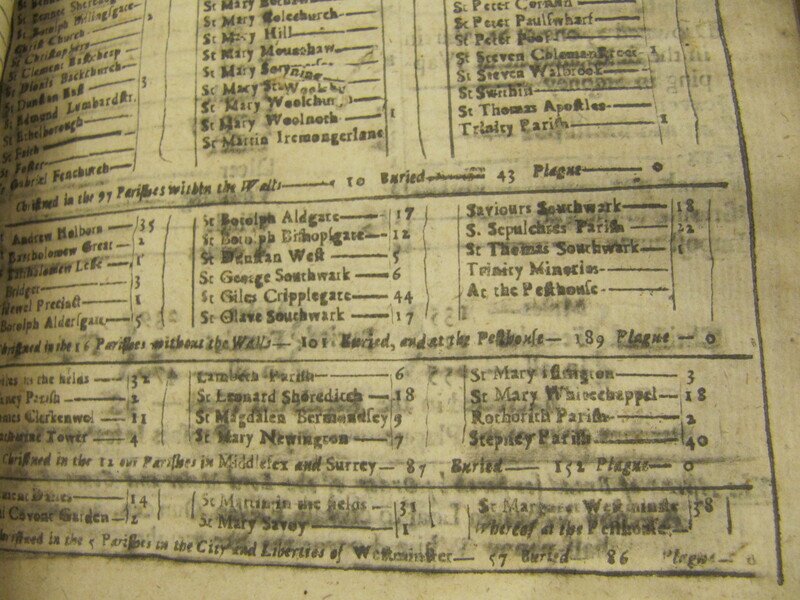 St Mary Colechurch
St Mary Hill
St Mary Mounthaw
St Mary Woolnoth 1
St Martin Iremongerlane
St Peter Cornhil
St Peter Paulſwharf
St Steven Colemanſtreet 1
St Steven Walbrook
St Swithin
St Thomas Apoſtles
Trinity Pariſh 1
Chriſt Church
St Chriſtophers
St Clement Eaſtcheap
St Dionis Backchurch
St Dunſtan Eaſt 3
St Edmund Lumbardſtr.
St Ethelborough
St Faith
St Foſter
St Gabriel Fenchurch
Chriſtned in the 97 Pariſhes within the Walls 10 Buried 43 Plague 0
St Andrew Holborn 35
St Bartholomew Great 2
St Bartholomew Leſſe 1
Bridget 3
Bridewel Precinct 1
Botolph Alderſgate 5
St Botolph Aldgate 17
St Botolph Biſhopſgate 12
St Dunſtan Weſt 5
St George Southwark 6
St Giles Cripplegate 44
St Olave Southwark 17
Saviours Southwark 18
S. Sepulchres Pariſh 22
St Thomas Southwark 1
Trinity Minories
At the Peſthouſe
Chriſtned in the 16 Pariſhes without the Walls 101 Buried, and at the Peſthouſe 189 Plague 0
Giles in the fields 32
Hackney Pariſh 2
James Clerkenwel 11
Katharine Tower 4
Lambeth Pariſh 6
St Leonard Shoreditch 18
St Magdalen Bermondſey 9
St Mary Newington 7
St Mary Iſlington 3
St Mary Whitechappel 18
Rothorith Pariſh 2
Stepney Pariſh 40
Chriſtned in the 12 out Pariſhes in Middleſex and Surrey 87 Buried 152 Plague 0
Clement Danes 14
Covent Garden 2
St Martin in the fields 31
St Mary Savoy 1
St Margaret Weſtminſter 38
Whereof at the Peſthouſe
Chriſtned in the 5 Pariſhes in the City and Liberties of Weſtminſter 57 Buried 86 Plague 0